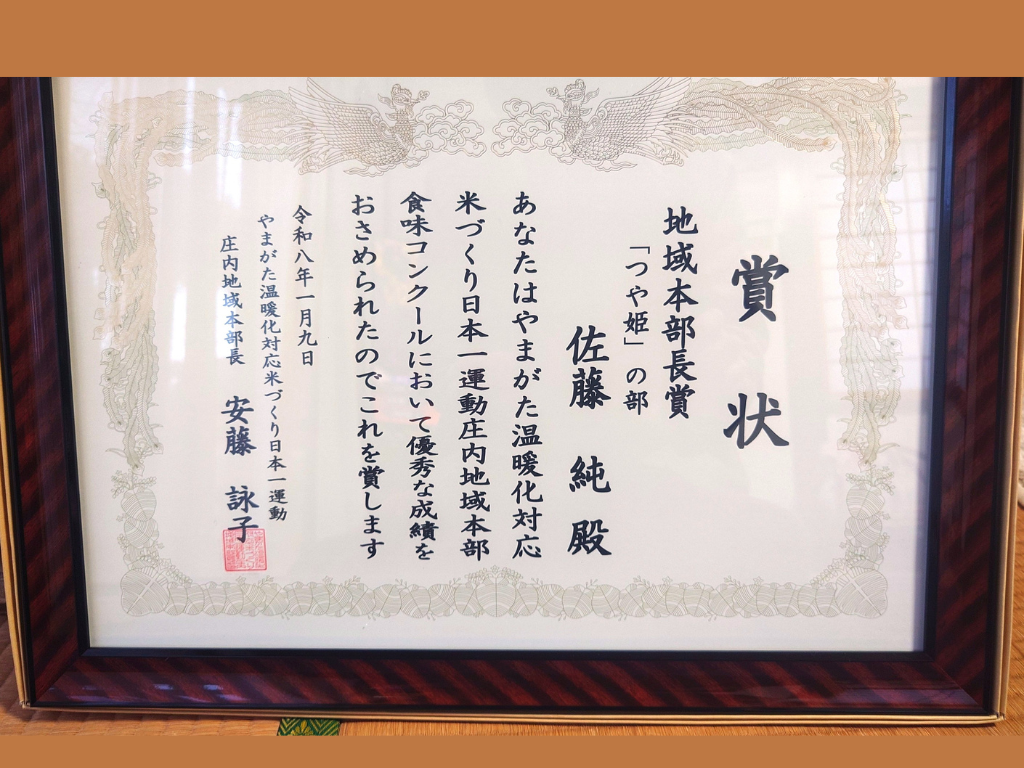 賞状
地域本部長賞
「つや姫」の部
佐藤 純 殿
あなたはやまがた温暖化対応
米づくり日本一運動庄内地域本部
食味コンクールにおいて優秀な成績を
おさめられたのでこれを賞します
令和八年一月九日
やまがた温暖化対応米づくり日本一運動
庄内地域本部長 安藤 詠子